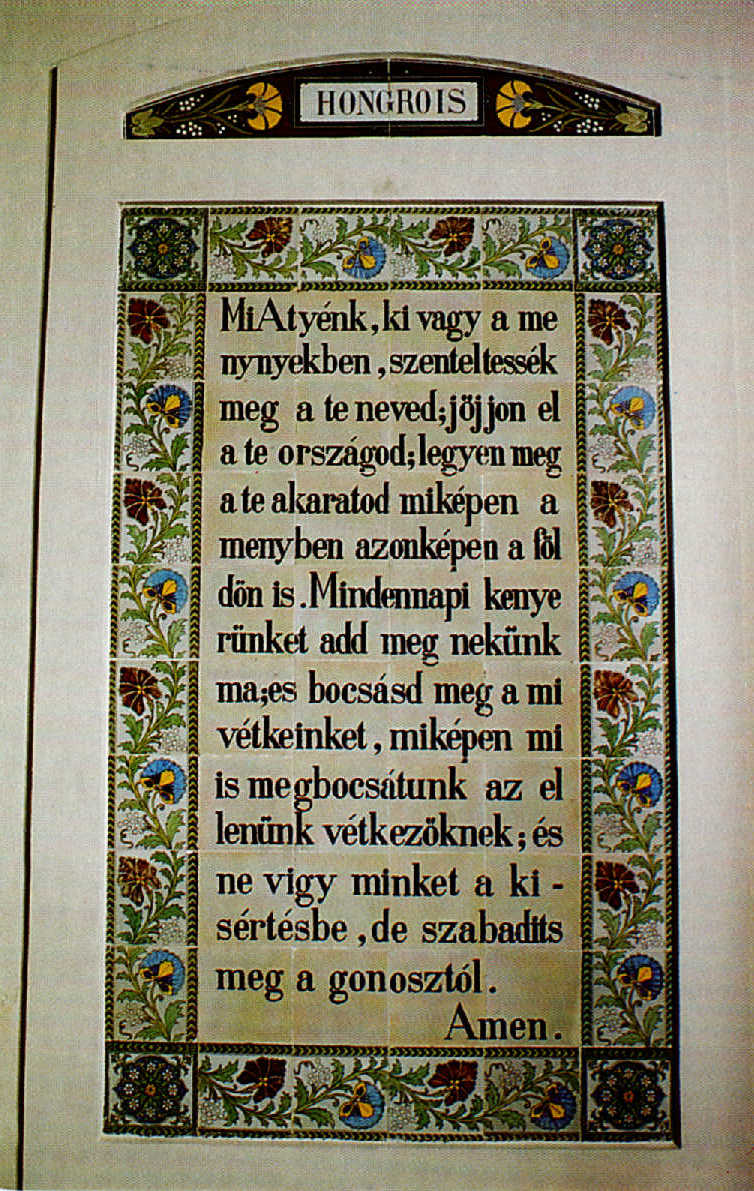 HONGROIS
MiAtyénk, ki vagy a me
nynyekben, szenteltessék
meg a te neved; jöjjon el
a te országod; legyen meg
a te akaratod miképen a
menyben azonképen a föl
dön is. Mindennapi kenye
rünket add meg nekünk
ma; es bocsásd meg a mi
vétkeinket, miképen mi
is megbocsátunk az el
lenünk vétkezöknek; és
ne vigy minket a ki-
sértésbe, de szabadits
meg a gonosztól.
Amen.